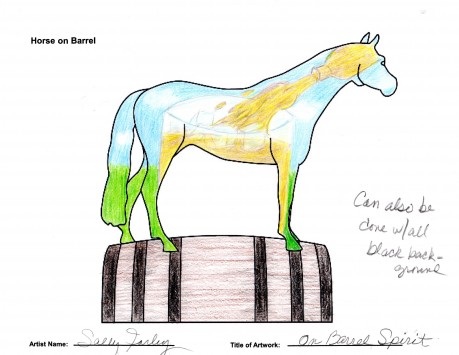 Horse on Barrel
Can also be
done w/all
black back-
ground
Artist Name: Sally
Title of Artwork: On Barrel Spirit